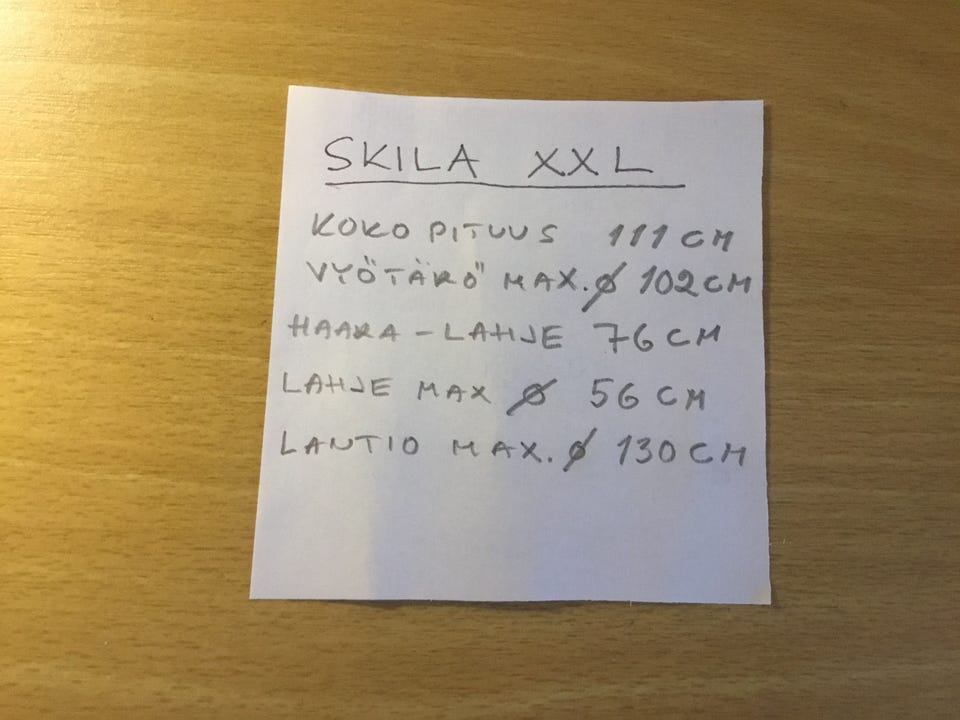 SKILA XXL
KOKO PITUUS 111 CM
VYÖTÄRÖ MAX. Ø 102 CM
HAARA - LAHJE 76 CM
LAHJE MAX Ø 56 CM
LANTIO MAX. Ø 130 CM